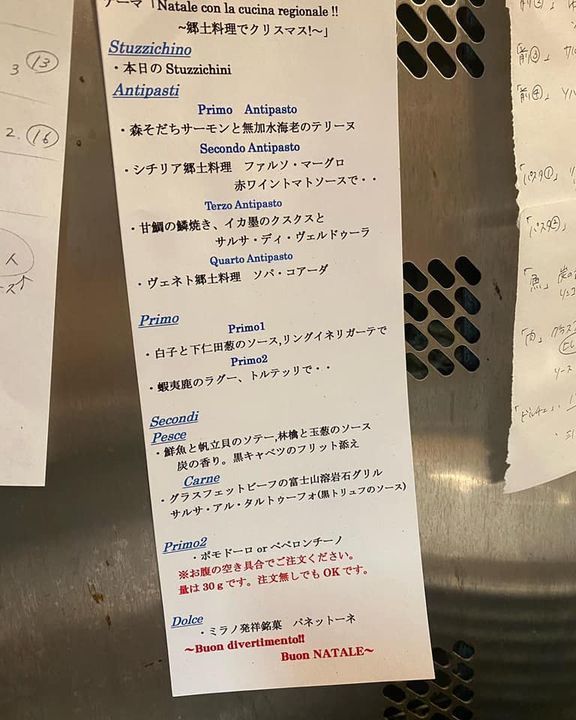 テーマ「Natale con la cucina regionale !!
~郷土料理でクリスマス!~」
Stuzzichino
・本日の Stuzzichini
Antipasti
Primo Antipasto
・森そだちサーモンと無加水海老のテリーヌ
Secondo Antipasto
・シチリア郷土料理 ファルソ・マーグロ
赤ワイントマトソースで・・
Terzo Antipasto
・甘鯛の鱗焼き、イカ墨のクスクスと
サルサ・ディ・ヴェルドゥーラ
Quarto Antipasto
・ヴェネト郷土料理 ソパ・コアーダ
Primo
Primo1
・白子と下仁田葱のソース,リングイネリガーテで
Primo2
・蝦夷鹿のラグー、トルテッリで・・
Secondi
Pesce
・鮮魚と帆立貝のソテー,林檎と玉葱のソース
炭の香り。黒キャベツのフリット添え
Carne
・グラスフェットビーフの富士山溶岩石グリル
サルサ・アル・タルトゥーフォ(黒トリュフのソース)
Primo2
・ポモドーロ or ペペロンチーノ
※お腹の空き具合でご注文ください。
量は 30g です。注文無しでも OK です。
Dolce
・ミラノ発祥銘菓 パネットーネ
~Buon divertimento!!
Buon NATALE~
3 ⑬
2. ⑯
人
ース↑
「前③」
「前④」
「パスタ①」
「パスタ②」
「魚」
「肉」
ソース